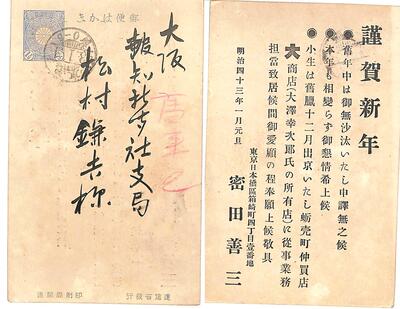 郵便はかき
大阪
報知新聞社支局
松村鎌吉様
印刷局製造
逓信省発行
謹賀新年
●舊年中は御無沙汰いたし申譯無之候
●本年も相變らず御懇情希上候
●小生は舊臘十二月出京いたし蛎売町仲買店
大商店(大澤幸次郎氏の所有店)に從事業務
担當致居候間御愛顧の程奉願上候敬具
明治四十三年一月元旦
東京日本橋區箱崎町四丁目壹番地
密田善三